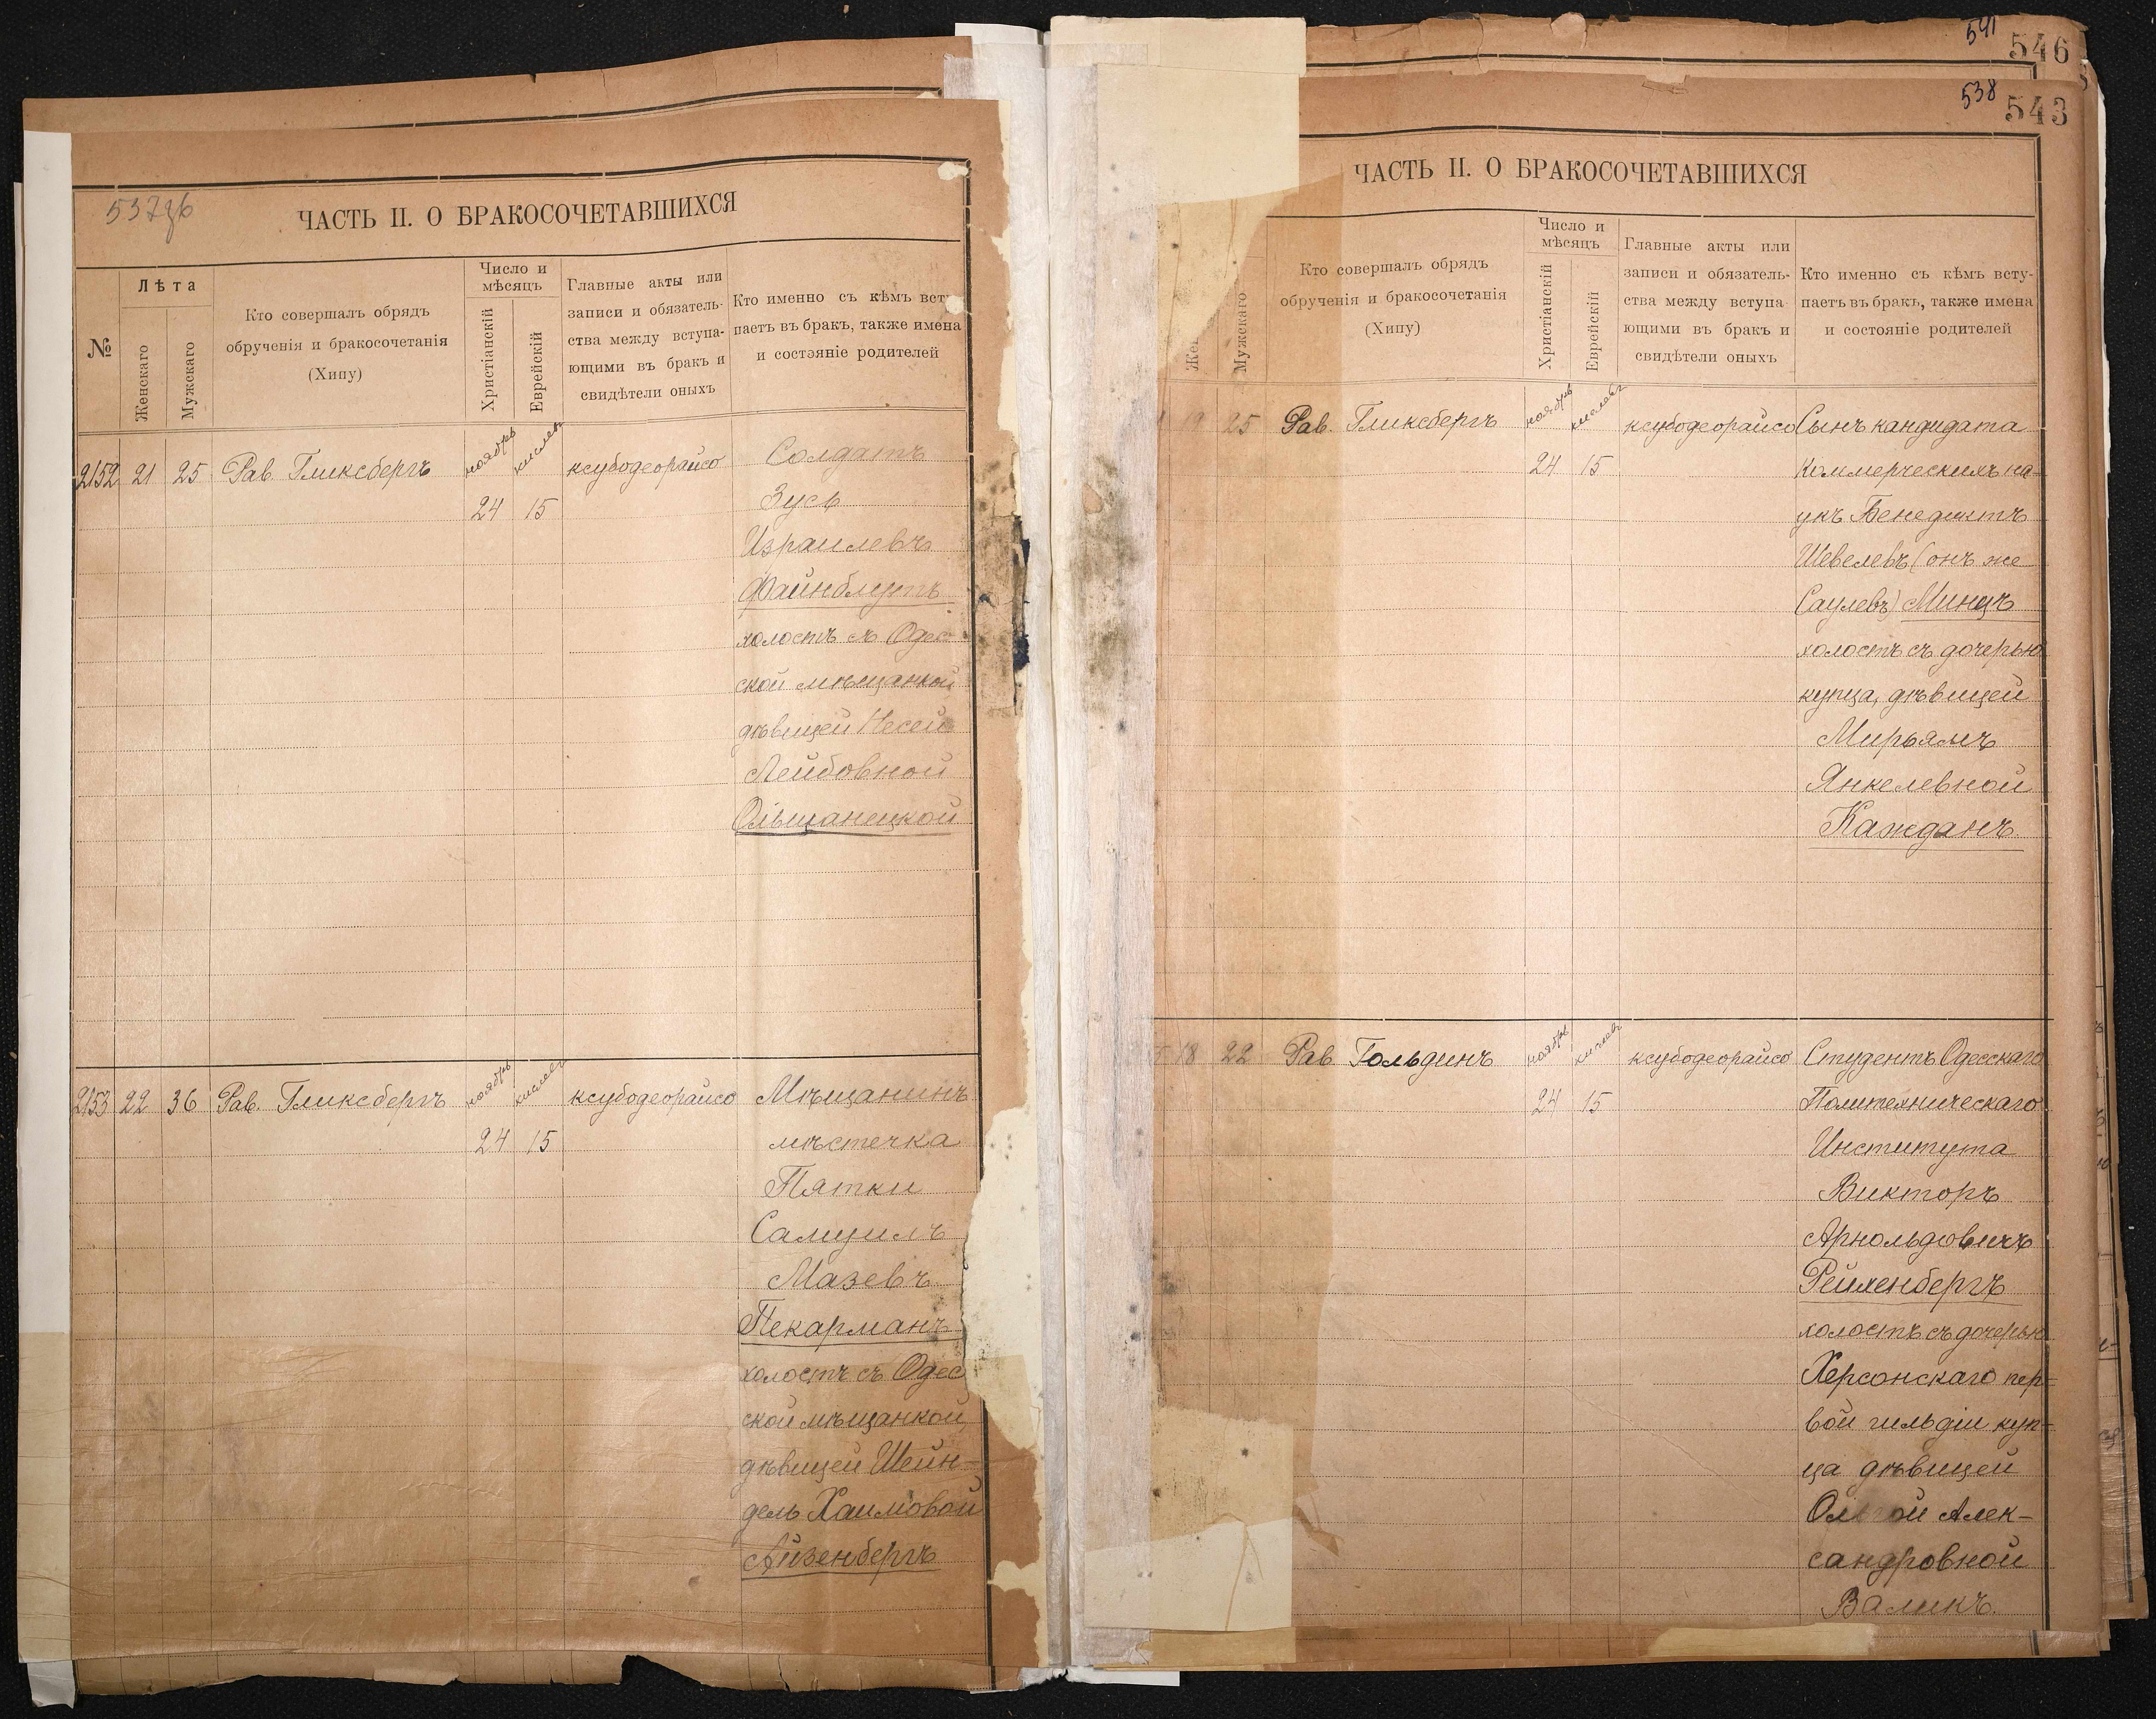 537зв
ЧАСТЬ II. О БРАКОСОЧЕТАВШИХСЯ
№
Лѣта
Женскаго
Мужскаго
Кто совершалъ обрядъ
обрученія и бракосочетанія
(Хипу)
Число и
мѣсяцъ
Христіанскій
Еврейскій
Главные акты или
записи и обязатель-
ства между вступа-
ющими въ бракъ и
свидѣтели оныхъ
Кто именно съ кѣмъ всту
паетъ въ бракъ, также имена
и состояніе родителей
2152 21 25 Рав. Гликсбергъ ноябрь кислевъ ксубодеорайсо Солдатъ
24 15 Зусь
Израилевъ
Файнблутъ
холостъ съ Одес-
ской мѣщанкой
дѣвицей Несей
Лейбовной
Ольшанецкой
2153 22 36 Рав. Гликсбергъ ноябрь кислевъ ксубодеорайсо Мѣщанинъ
24 15 мѣстечка
Пятки
Самуилъ
Мазевъ
Пекарманъ
холостъ съ Одес
ской мѣщанкой,
дѣвицей Шейн-
дель Хаимовой
Айзенбергъ
541
546
538
543
ЧАСТЬ II. О БРАКОСОЧЕТАВШИХСЯ
Жен
Мужскаго
Кто совершалъ обрядъ
обрученія и бракосочетанія
(Хипу)
Число и
мѣсяцъ
Христіанскій
Еврейскій
Главные акты или
записи и обязатель-
ства между вступа-
ющими въ бракъ и
свидѣтели оныхъ
Кто именно съ кѣмъ всту-
паетъ въ бракъ, также имена
и состояніе родителей
19 25 Рав. Гликсбергъ ноябрь кислевъ ксубодеорайсо Сынъ кандидата
24 15 Коммерческихъ на-
укъ Бенедиктъ
Шевелевъ (онъ же
Саулевъ) Минцъ
холостъ съ дочерью
купца, дѣвицей
Мирьямъ
Янкелевной
Кажданъ.
18 22 Рав. Гольдинъ ноябрь кислевъ ксубодеорайсо Студентъ Одесскаго
24 15 Политехническаго
Института
Викторъ
Арнольдовичъ
Рейхенбергъ
холостъ съ дочерью
Херсонскаго пер-
вой гильдіи куп-
ца дѣвицей
Ольгой Алек-
сандровной
Валикъ.